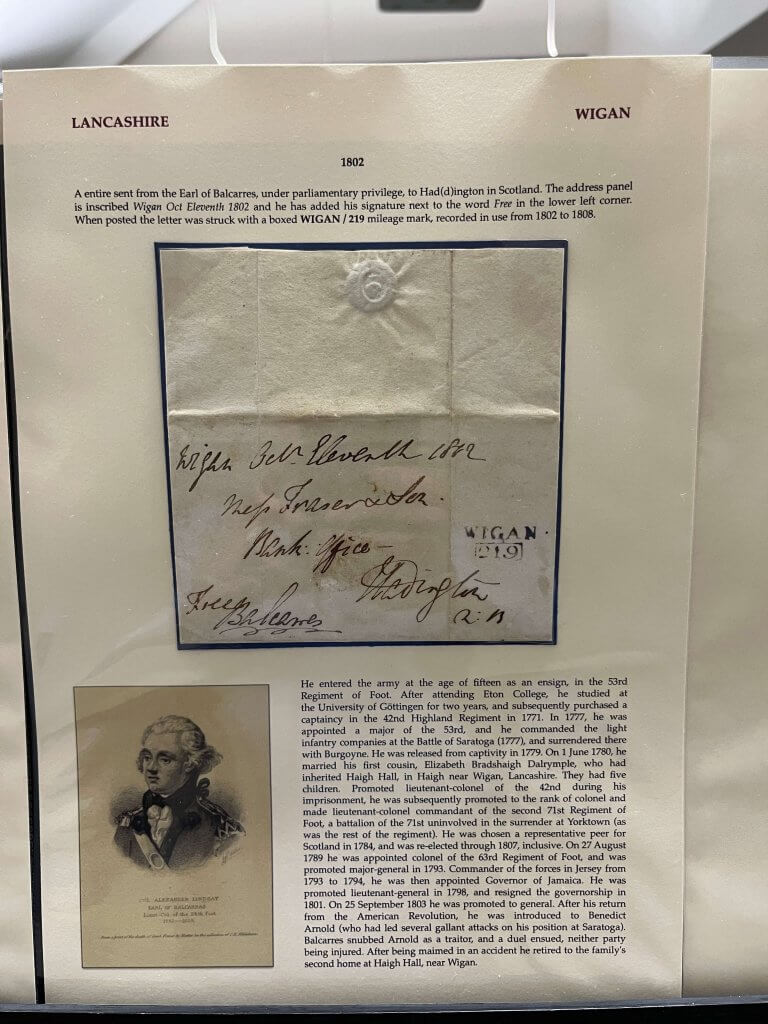 LANCASHIRE
WIGAN
1802
A entire sent from the Earl of Balcarres, under parliamentary privilege, to Had(d)ington in Scotland. The address panel
is inscribed Wigan Oct Eleventh 1802 and he has added his signature next to the word Free in the lower left corner.
When posted the letter was struck with a boxed WIGAN / 219 mileage mark, recorded in use from 1802 to 1808.
Wigan Octr Eleventh 1802
Mess Fraser & Son.
Bank Office
WIGAN
219
Hadington
Free
Balcarres
N:B
He entered the army at the age of fifteen as an ensign, in the 53rd
Regiment of Foot. After attending Eton College, he studied at
the University of Göttingen for two years, and subsequently purchased a
captaincy in the 42nd Highland Regiment in 1771. In 1777, he was
appointed a major of the 53rd, and he commanded the light
infantry companies at the Battle of Saratoga (1777), and surrendered there
with Burgoyne. He was released from captivity in 1779. On 1 June 1780, he
married his first cousin, Elizabeth Bradshaigh Dalrymple, who had
inherited Haigh Hall, in Haigh near Wigan, Lancashire. They had five
children. Promoted lieutenant-colonel of the 42nd during his
imprisonment, he was subsequently promoted to the rank of colonel and
made lieutenant-colonel commandant of the second 71st Regiment of
Foot, a battalion of the 71st uninvolved in the surrender at Yorktown (as
was the rest of the regiment). He was chosen a representative peer for
Scotland in 1784, and was re-elected through 1807, inclusive. On 27 August
1789 he was appointed colonel of the 63rd Regiment of Foot, and was
promoted major-general in 1793. Commander of the forces in Jersey from
1793 to 1794, he was then appointed Governor of Jamaica. He was
promoted lieutenant-general in 1798, and resigned the governorship in
1801. On 25 September 1803 he was promoted to general. After his return
from the American Revolution, he was introduced to Benedict
Arnold (who had led several gallant attacks on his position at Saratoga).
Balcarres snubbed Arnold as a traitor, and a duel ensued, neither party
being injured. After being maimed in an accident he retired to the family's
second home at Haigh Hall, near Wigan.
COL. ALEXANDER LINDSAY
EARL OF BALCARRAS
Lieut-Col. of the Foot
From a print of the death of Genl. Fraser by in the collection of